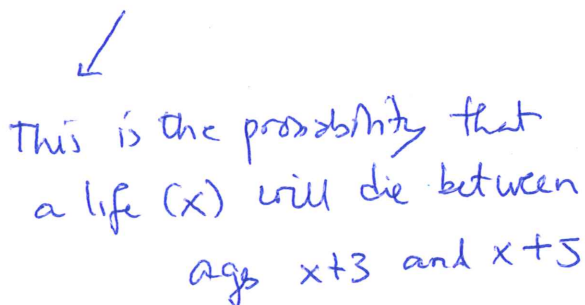 This is the probability that
a life (x) will die between
ages x+3 and x+5